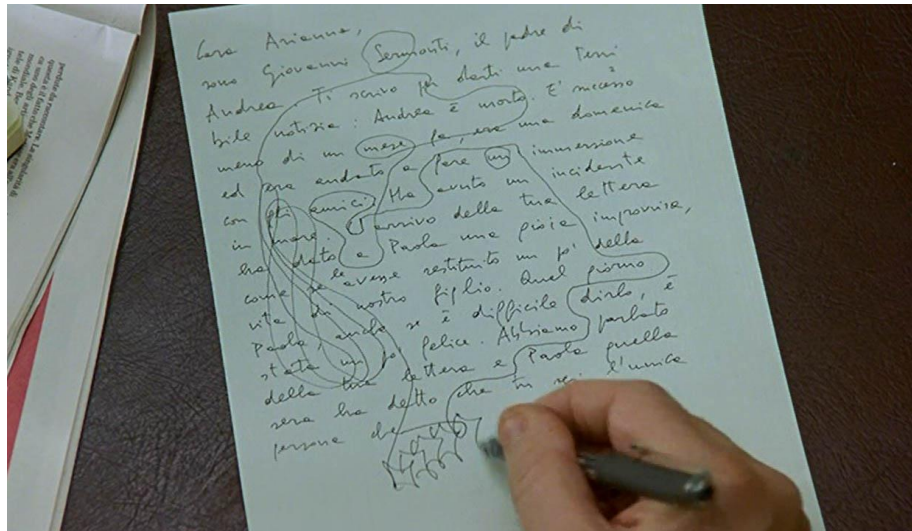 Cara Arianna,
sono Giovanni Sermonti, il padre di
Andrea. Ti scrivo per darti una terri
bile notizia: Andrea è morto. E' successo
meno di un mese fa, era una domenica
ed era andato a fare un immersione
con gli amici. Ha avuto un incidente
in mare. L'arrivo della tua lettera
ha dato a Paola una gioia improvvisa,
come se le avesse restituito un po' della
vita di nostro figlio. Quel giorno
Paola, anche se è difficile dirlo, è
stata un po' felice. Abbiamo parlato
della tua lettera e Paola quella
sera ha detto che tu sei l'unica
persona che